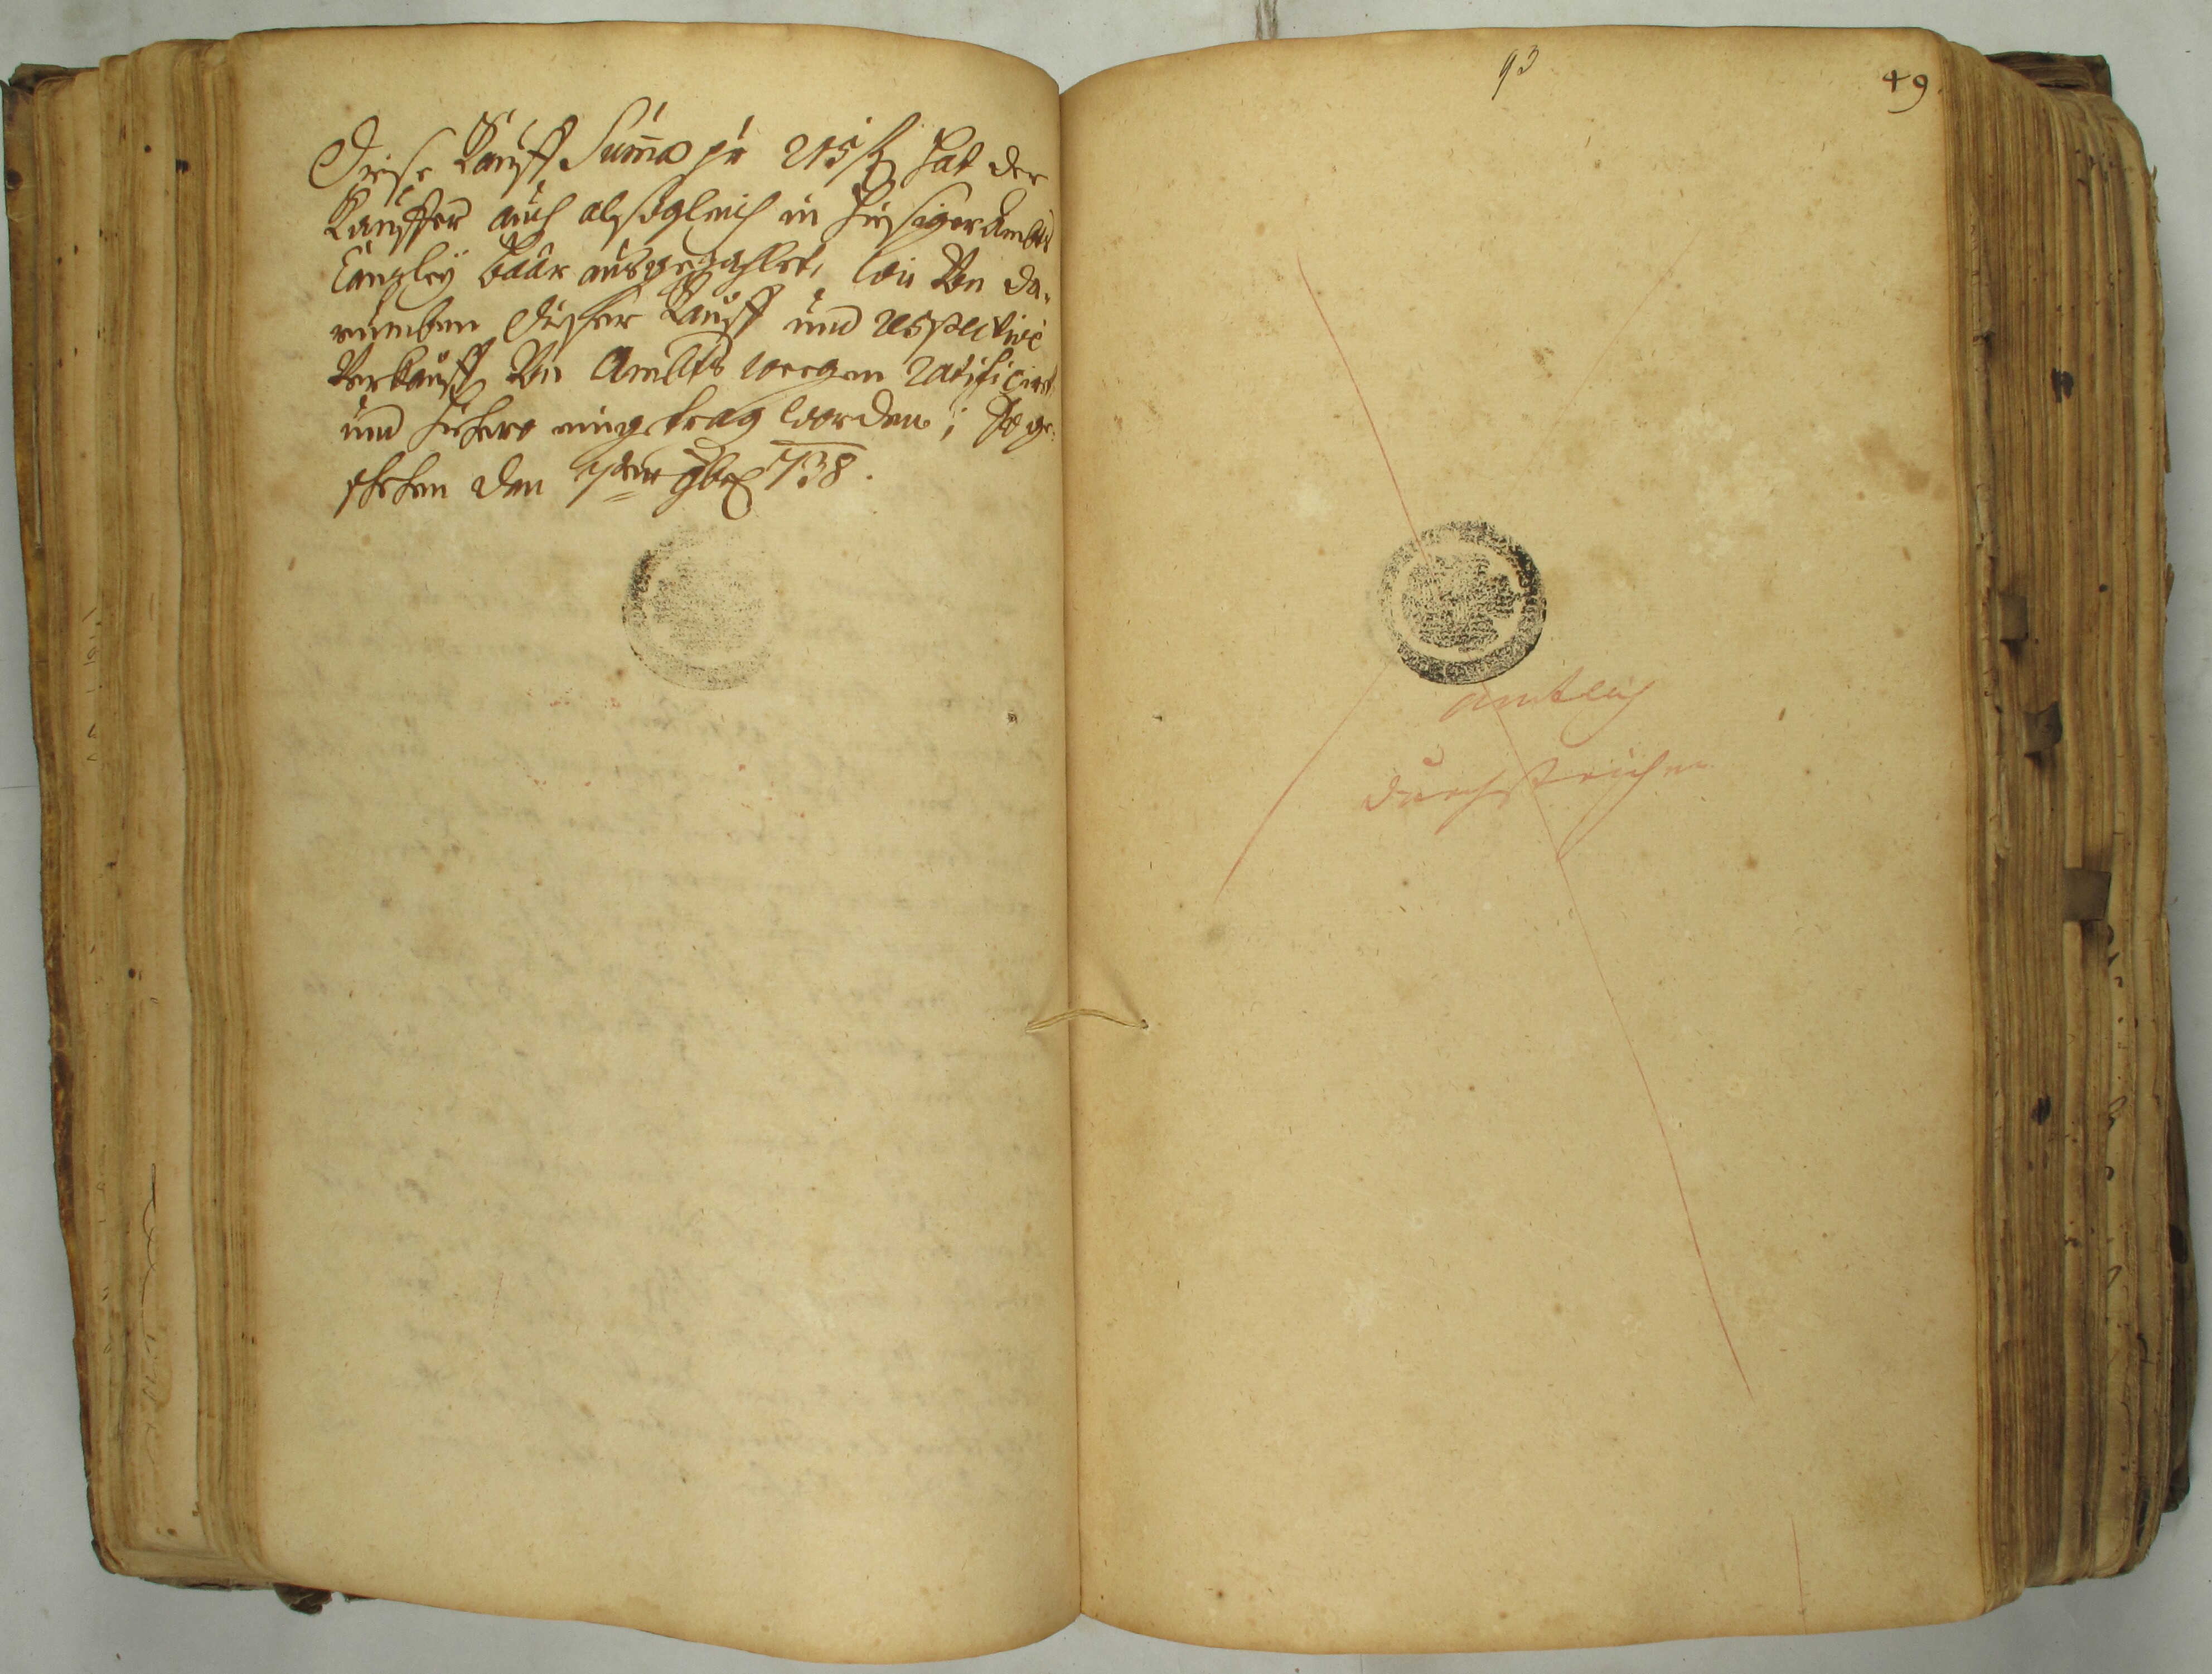 Diese Kauff Summa pr 215 f hat der
Kauffer auch alsogleich in hiesiger Ambts
Canzley baar ausgezahlet, wie Von da-
rumben dieser Kauff und respective
Verkauff Von Ambts weegen ratificiret
und hiehero eingetrag worden; So ge-
schehen den 9ber 1738.
93
49.
amtlich
durchstrichen